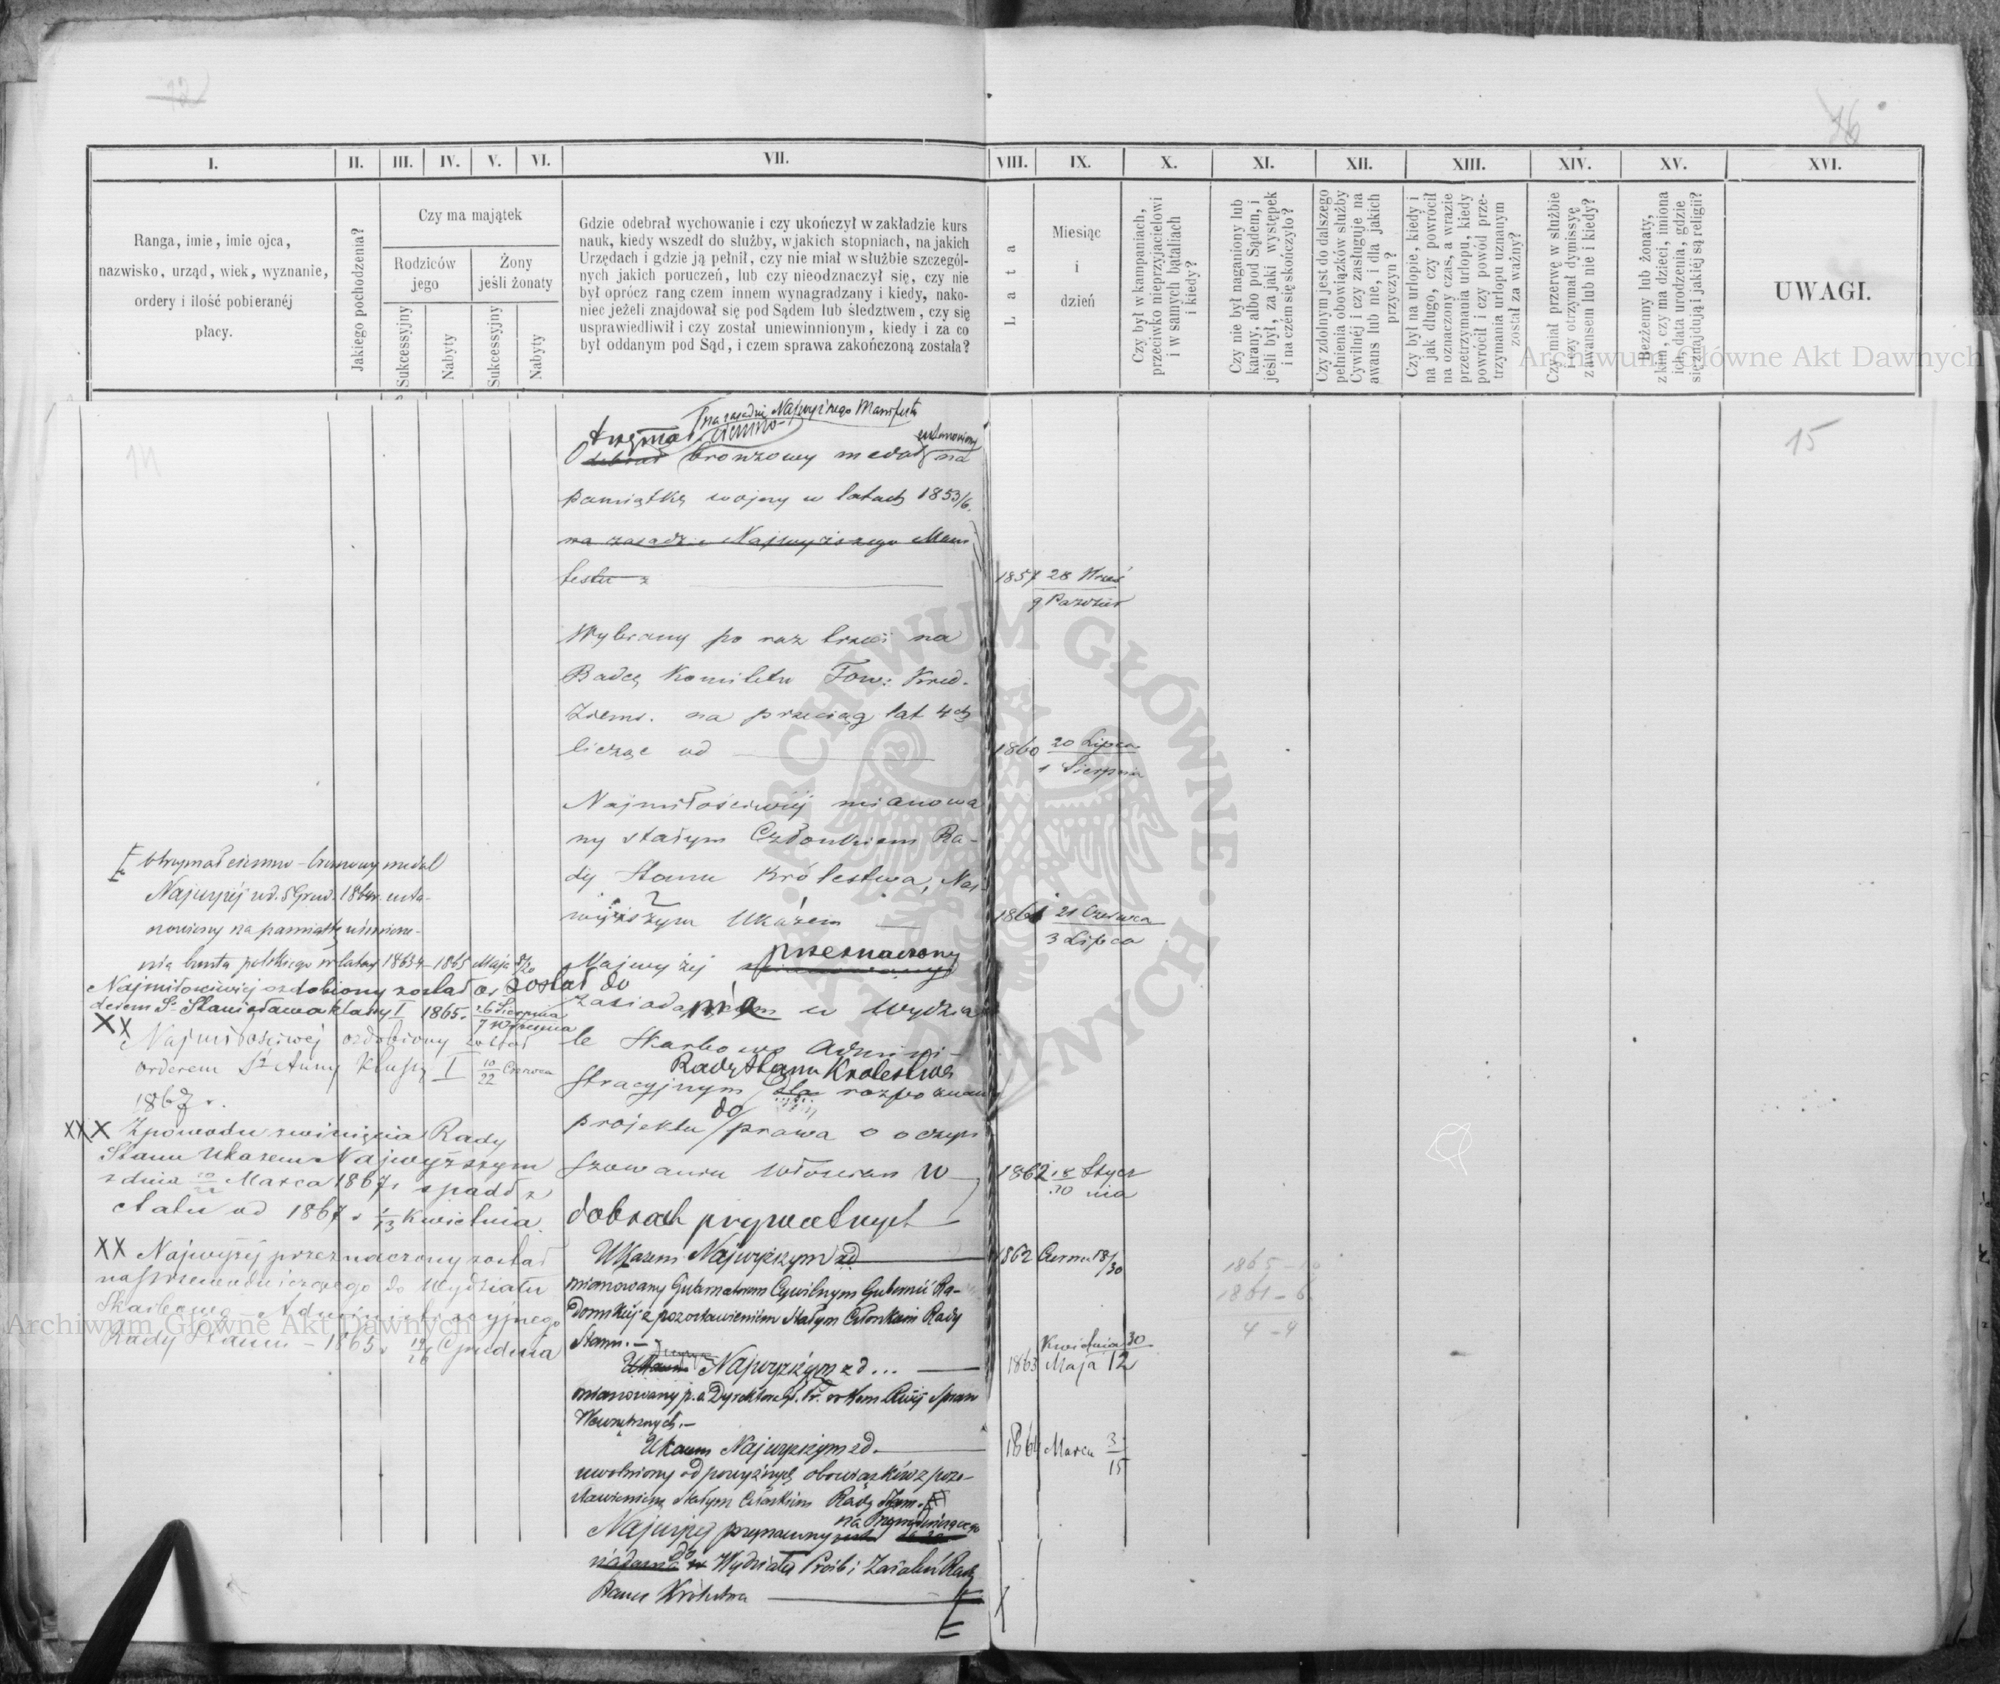 12
16
I.
II.
III.
IV.
V.
VI.
VII.
VIII.
IX.
X.
XI.
XII.
XIII.
XIV.
XV.
XVI.
Ranga, imie, imie ojca,
nazwisko, urząd, wiek, wyznanie,
ordery i ilość pobieranéj
płacy.
Jakiego pochodzenia?
Czy ma majątek
Rodziców
jego
Żony
jeśli żonaty
Sukcessyjny
Nabyty
Sukcessyjny
Nabyty
Gdzie odebrał wychowanie i czy ukończył w zakładzie kurs
nauk, kiedy wszedł do służby, w jakich stopniach, na jakich
Urzędach i gdzie ją pełnił, czy nie miał w służbie szczegól-
nych jakich poruczeń, lub czy nieodznaczył się, czy nie
był oprócz rang czem innem wynagradzany i kiedy, nako-
niec jeżeli znajdował się pod Sądem lub śledztwem, czy się
usprawiedliwił i czy został uniewinnionym, kiedy i za co
był oddanym pod Sąd, i czem sprawa zakończoną została?
Lata
Miesiąc
i
dzień
Czy był w kampaniach,
przeciwko nieprzyjacielowi
i w samych bataliach
i kiedy?
Czy nie był naganiony lub
karany, albo pod Sądem, i
jeśli był, za jaki występek
i na czem się skończyło?
Czy zdolnym jest do dalszego
pełnienia obowiązków służby
Cywilnéj i czy zasługuje na
awans lub nie, i dla jakich
przyczyn?
Czy był na urlopie, kiedy i
na jak długo, czy powrócił
na oznaczony czas, a w razie
przetrzymania urlopu, kiedy
powrócił i czy powód prze-
trzymania urlopu uznanym
został za ważny?
Czy miał przerwę w służbie
i czy otrzymał dymissyę
z awansem lub nie i kiedy?
Bezżenny lub żonaty,
z kim, czy ma dzieci, imiona
ich, data urodzenia, gdzie
się znajdują i jakiéj są religii?
UWAGI.
Archiwum Główne Akt Dawnych
14
15
na zasadzie Najwyższego Manifestu
otrzymał ciemno-
odebrał bronzowy medal ustanowiony na
pamiątkę wojny w latach 1853/6.
na zasadzie Najwyższego Mani
festu z
1857 28 Wrześ
9 Paździer
Wybrany po raz trzeci na
Radcę Komitetu Tow: Kred.
Ziems. na przeciąg lat 4ch
licząc od
1860 20 Lipca
1 Sierpnia
Najmiłościwiej mianowa
ny stałym Członkiem Ra-
dy Stanu Królestwa, Naj
wyższym Ukazem
1861 21 Czerwca
3 Lipca
Najwyżej przeznaczony
został do
zasiadania w Wydzia
le Skarbowo Admini-
stracyjnym Rady Stanu Królestwa
dla rozpoznania
projektu do prawa o oczyn
szowaniu włościan w
dobrach prywatnych
1862 18 Stycz
30 nia
Ukazem Najwyższym zd
1862 Czerw 18/30
mianowany Gubernatorem Cywilnym Gubernii Ra-
domskiej z pozostawieniem Stałym Członkiem Rady
Stanu.
Ukazem Najwyższym zd...
1863 Kwietnia 30
Maja 12
mianowany p.o. Dyrektora Gł. Pr. w Kom. Rząd. Spraw
Wewnętrznych.
Ukazem Najwyższym zd.
1864 Marca 3
15
uwolniony od powyższych obowiązków z pozo-
stawieniem Stałym Członkiem Rady Stanu.
Najwyżej przeznaczony na Przewodniczącego
do Wydziału Próśb i Zażaleń Rady
Stanu Królestwa
otrzymał ciemno-bronzowy medal
Najwyżej ud. 5 Grud. 1864 r. usta-
nowiony na pamiątkę uśmierze-
nia buntu polskiego w latach 1863/4 - 1865 Maja 8/20
Najmiłościwiej ozdobiony został or
derem Sgo Stanisława klassy I 1865. 26 Sierpnia
7 Września
XX
Najmiłościwiej ozdobiony został
orderem Śt Anny Klassy I 10/22 Czerwca
1867 r.
XXX Z powodu zwinięcia Rady
Stanu Ukazem Najwyższym
z dnia 10/22 Marca 1867 r spadł z
etatu od 1867 r 1/13 Kwietnia.
XX Najwyżej przeznaczony został
na Przewodniczącego do Wydziału
Skarbowo-Administracyjnego
Rady Stanu - 1865 r 14/26 Grudnia
1865 - 10
1861 - 6
4 - 4
Archiwum Główne Akt Dawnych
ARCHIWUM GŁÓWNE AKT DAWNYCH